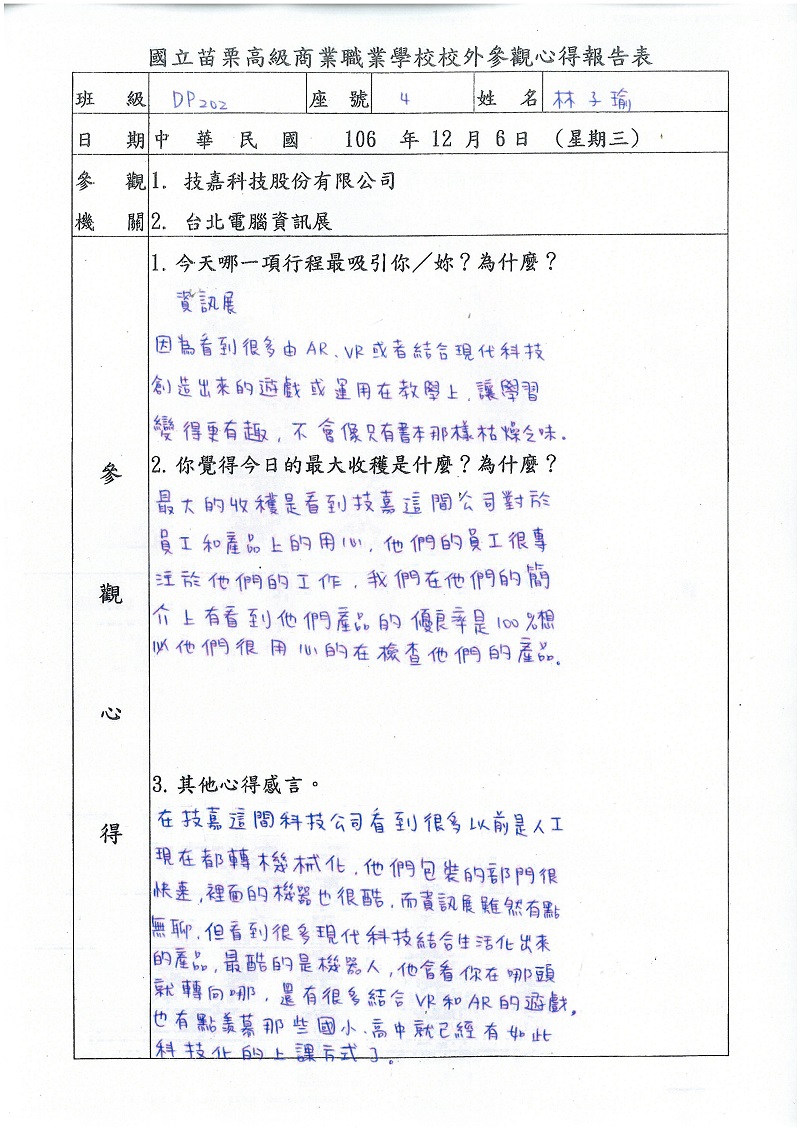 國立苗栗高級商業職業學校校外參觀心得報告表
班級 DP202 座號 4 姓名 林子瑜
日期 中華民國 106 年 12 月 6 日 (星期三)
參觀 1. 技嘉科技股份有限公司
機關 2. 台北電腦資訊展
參觀心得
1. 今天哪一項行程最吸引你／妳？為什麼？
資訊展
因為看到很多由 AR、VR 或者結合現代科技
創造出來的遊戲或運用在教學上，讓學習
變得更有趣，不會像只有書本那樣枯燥乏味.
2. 你覺得今日的最大收穫是什麼？為什麼？
最大的收穫是看到技嘉這間公司對於
員工和產品上的用心，他們的員工很專
注於他們的工作，我們在他們的簡
介上有看到他們產品的優良率是100%想
以他們很用心的在檢查他們的產品。
3. 其他心得感言。
在技嘉這間科技公司看到很多以前是人工
現在都轉機械化，他們包裝的部門很
快速，裡面的機器也很酷，而資訊展雖然有點
無聊，但看到很多現代科技結合生活化出來
的產品，最酷的是機器人，他會看你在哪頭
就轉向哪，還有很多結合 VR 和 AR 的遊戲，
也有點羨慕那些國小、高中就已經有如此
科技化的上課方式了。